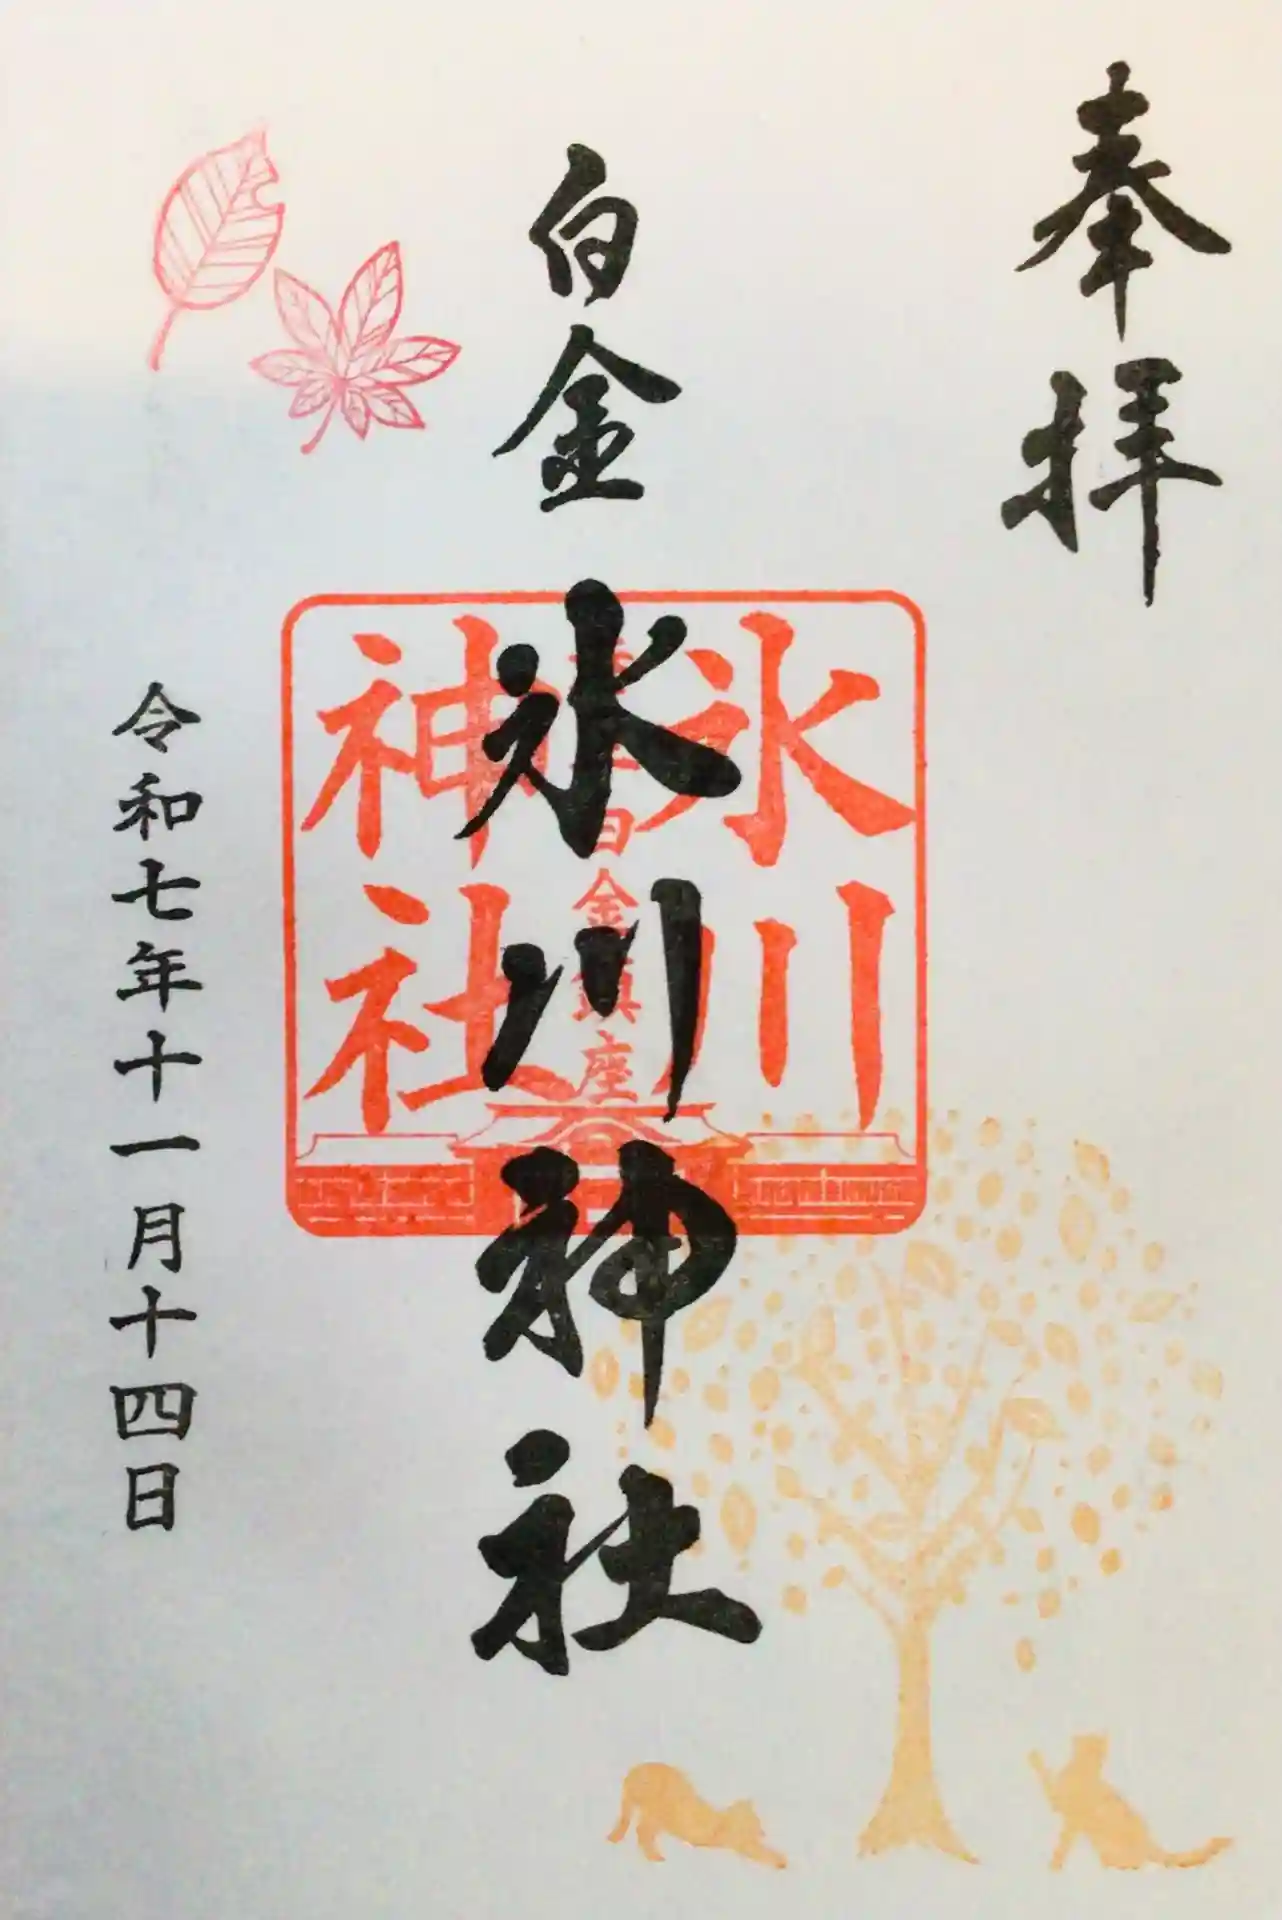 奉拝
白金氷川神社
氷川
白金鎮座
神社
令和七年十一月十四日